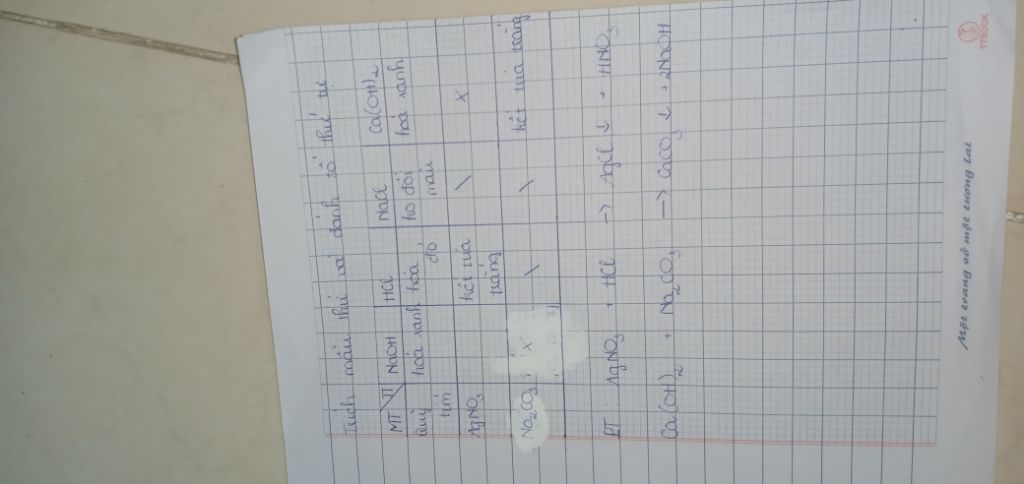 Trích mẫu thử và đánh số thứ tự
MT TT NaOH HCl NaCl Ca(OH)2
Quỳ tím hoá xanh hoá đỏ ko đổi màu hoá xanh
AgNO3 kết tủa trắng \ X
Na2CO3 X \ \ kết tủa trắng
PT: AgNO3 + HCl → AgCl ↓ + HNO3
Ca(OH)2 + Na2CO3 → CaCO3 ↓ + 2NaOH
Một trang vở một tương lai
TTBOOK